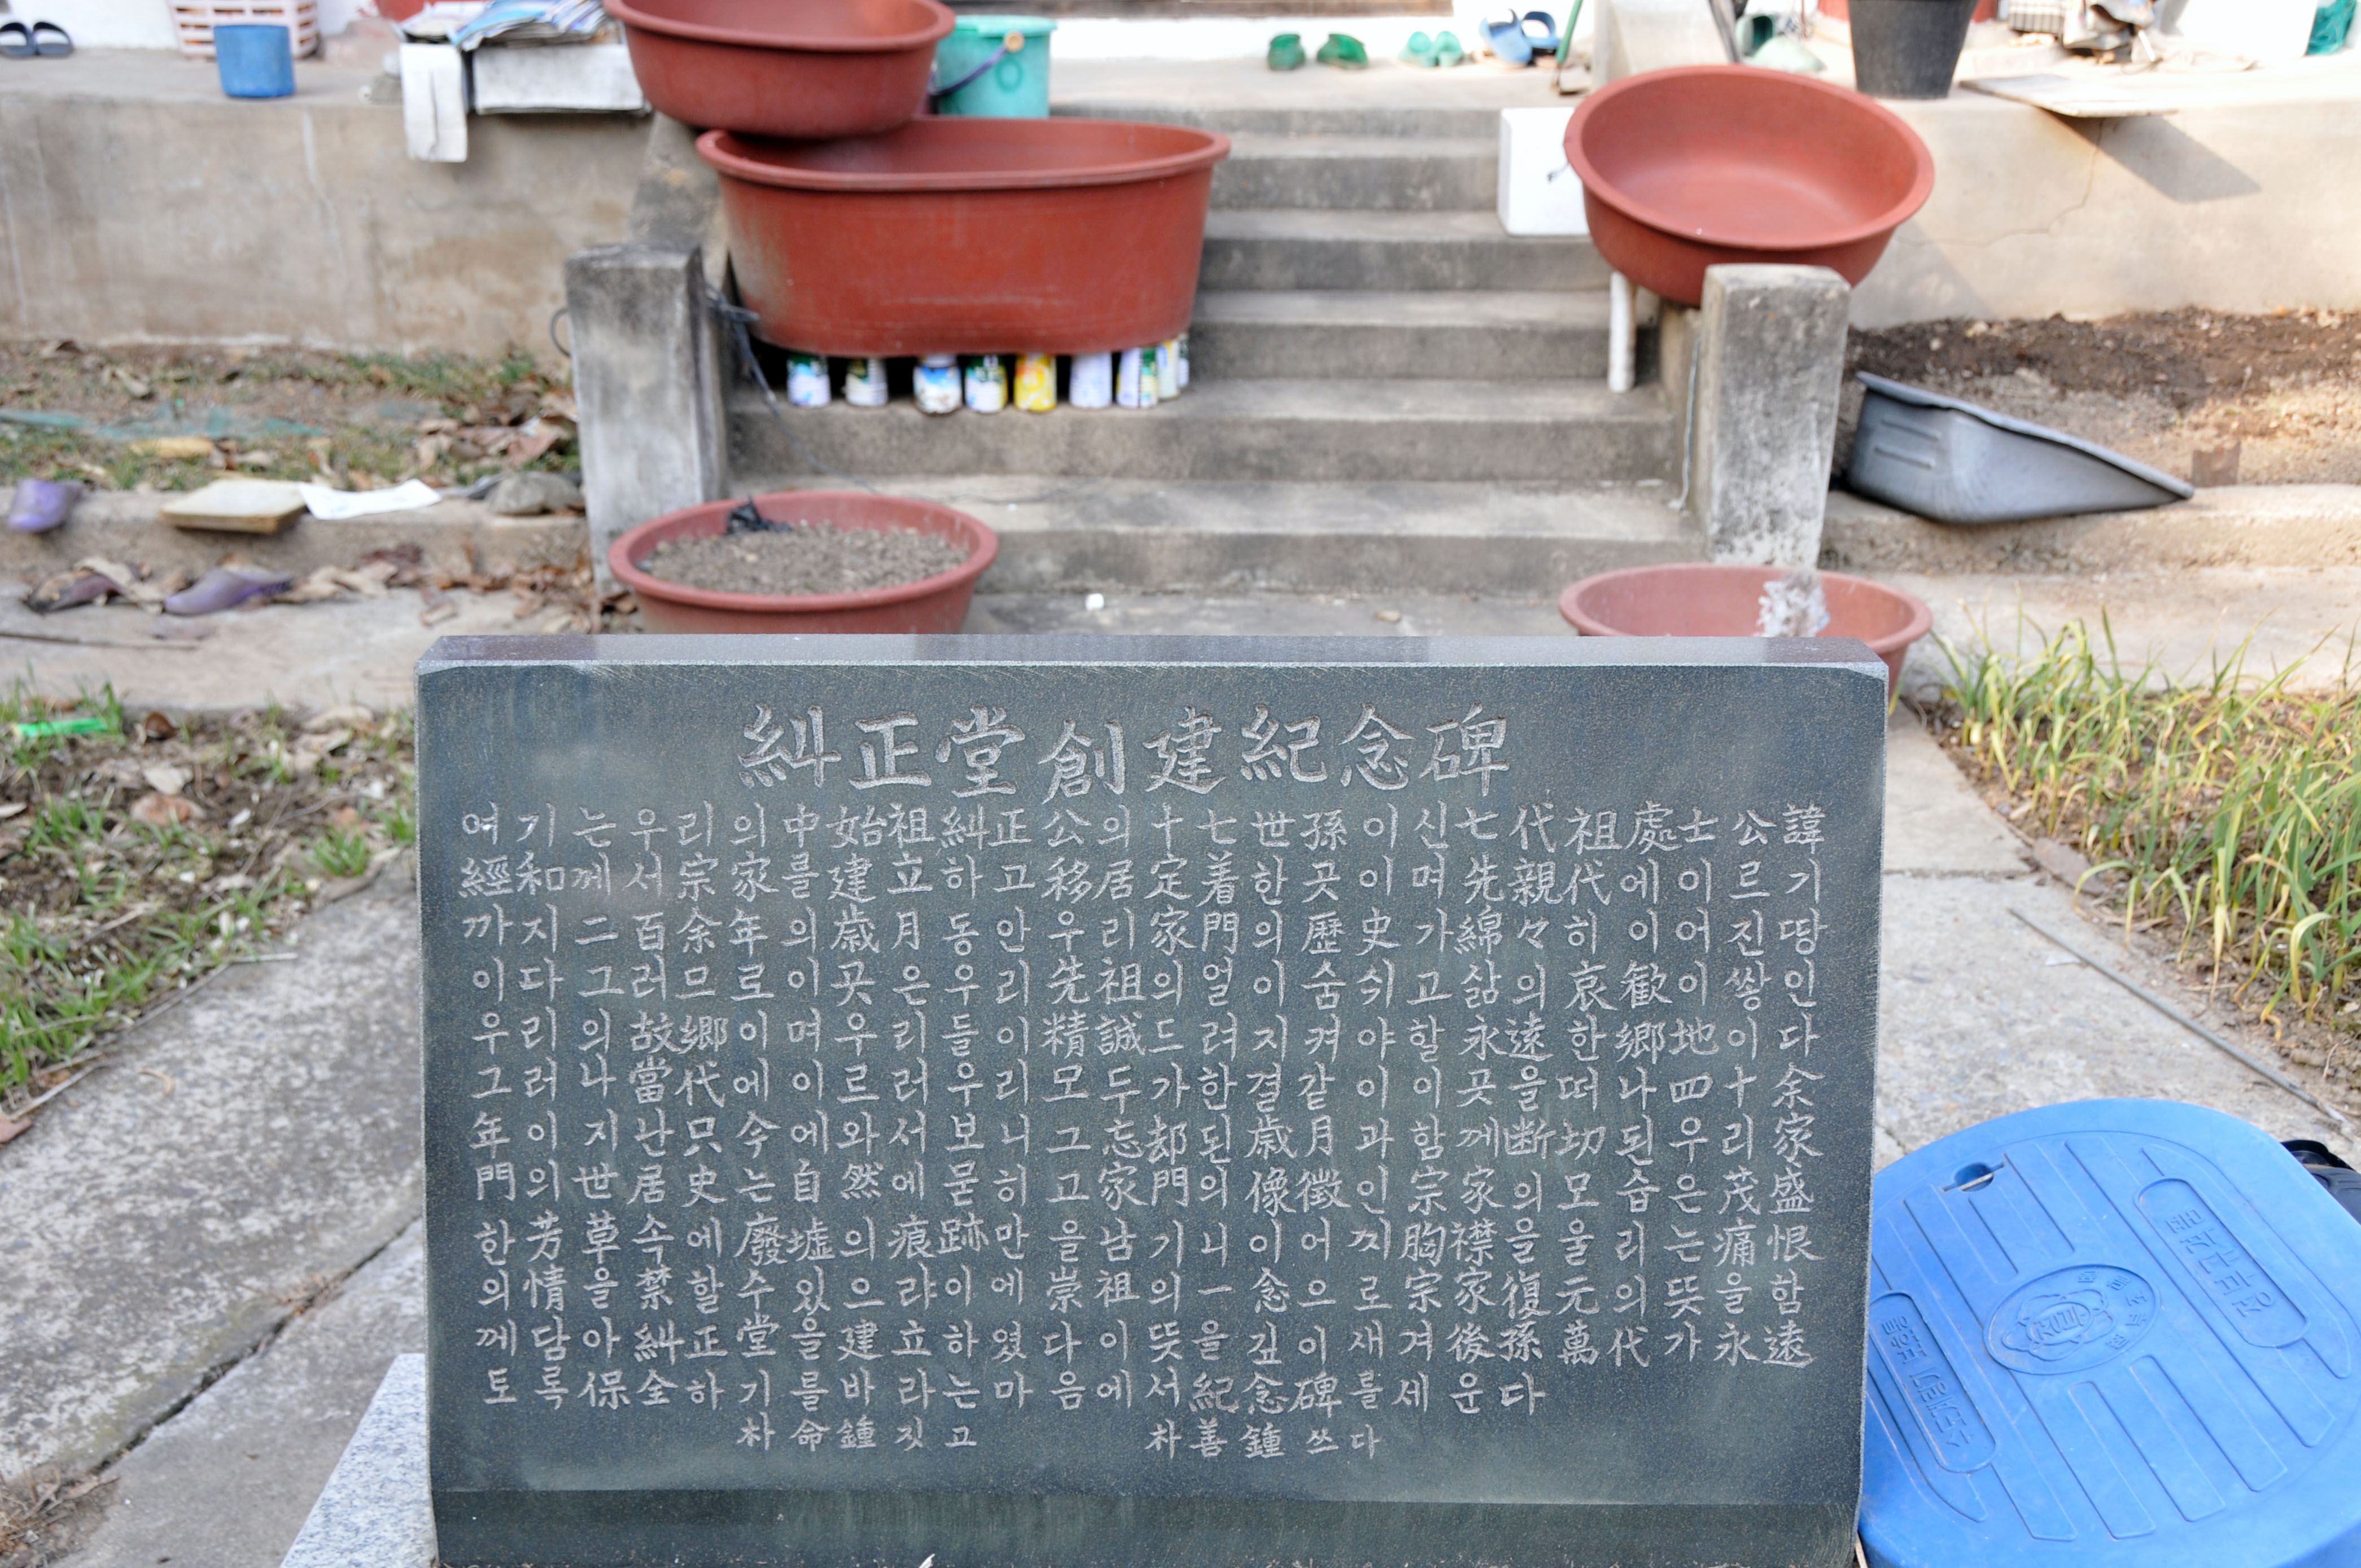 糾正堂創建紀念碑
여기는우리의中始祖糾正公의十七世孫이신七代祖處士公諱
經和께서宗家를建立하고移居定着한곳이며先親代에이르기
까지二百余年의歳月동안우리家門의歷史가綿々히이어진땅
이다그러므로이곳은우리先祖의얼이숨쉬고삶의哀歓이쌓인
우리의故鄕이며우리들이精誠드려지켜야할永遠한鄕地이다
그러나當代에이르러우리모두가한결같이이곳을떠나四十余
年이지난只수에와서보니그忘却된歳月과함께断切된우리家
門의世居史는自然에묻히고家門의像徵인宗家의모습은茂盛
한芳草속에廢墟의痕跡만을남기니이어찌胸襟을울리는痛恨
의情을禁할수있으랴이에崇祖의一念으로宗家復元의뜻을함
께담아糾正堂을建立하였다이뜻을깊이새겨後孫萬代가永遠
도록保全하기를바라는마음에서紀念碑를세운다
朴命鍾짓고 朴善鍾쓰다